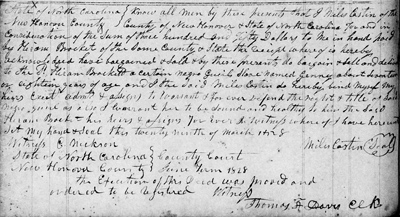 State of North Carolina Know all men by these presents that I Miles Costin of the
New Hanover County County of New Hanover & State of North Carolina for and in
Consideration of the Sum of three hundred and fifty Dollars to Me in hand paid
by Hiram Brocket of the Same County & State the receipt whereof is hereby
acknowledged have bargained & Sold & by these presents do bargain & Sell and deliver
to the Sd Hiram Brockett a certain negro Girl Slave named Jenny about Seventeen
or eighteen years of age and I the said Miles Costin do hereby bind myself my
heirs &c to for ever defend the right & title of Said
negro girl as a Slave I warrant her to be sound and healthy to him the Said
Hiram Brocket & her heirs & assigns for ever In Witness whereof I have hereunto
Set My hand & Seal this twenty ninth of March 1828
Witness Miles Costin Seal
State of North Carolina County Court
New Hanover County June Term 1828
the Execution of this Deed was proved and
ordered to be registered Witness
Thomas F Davis C C